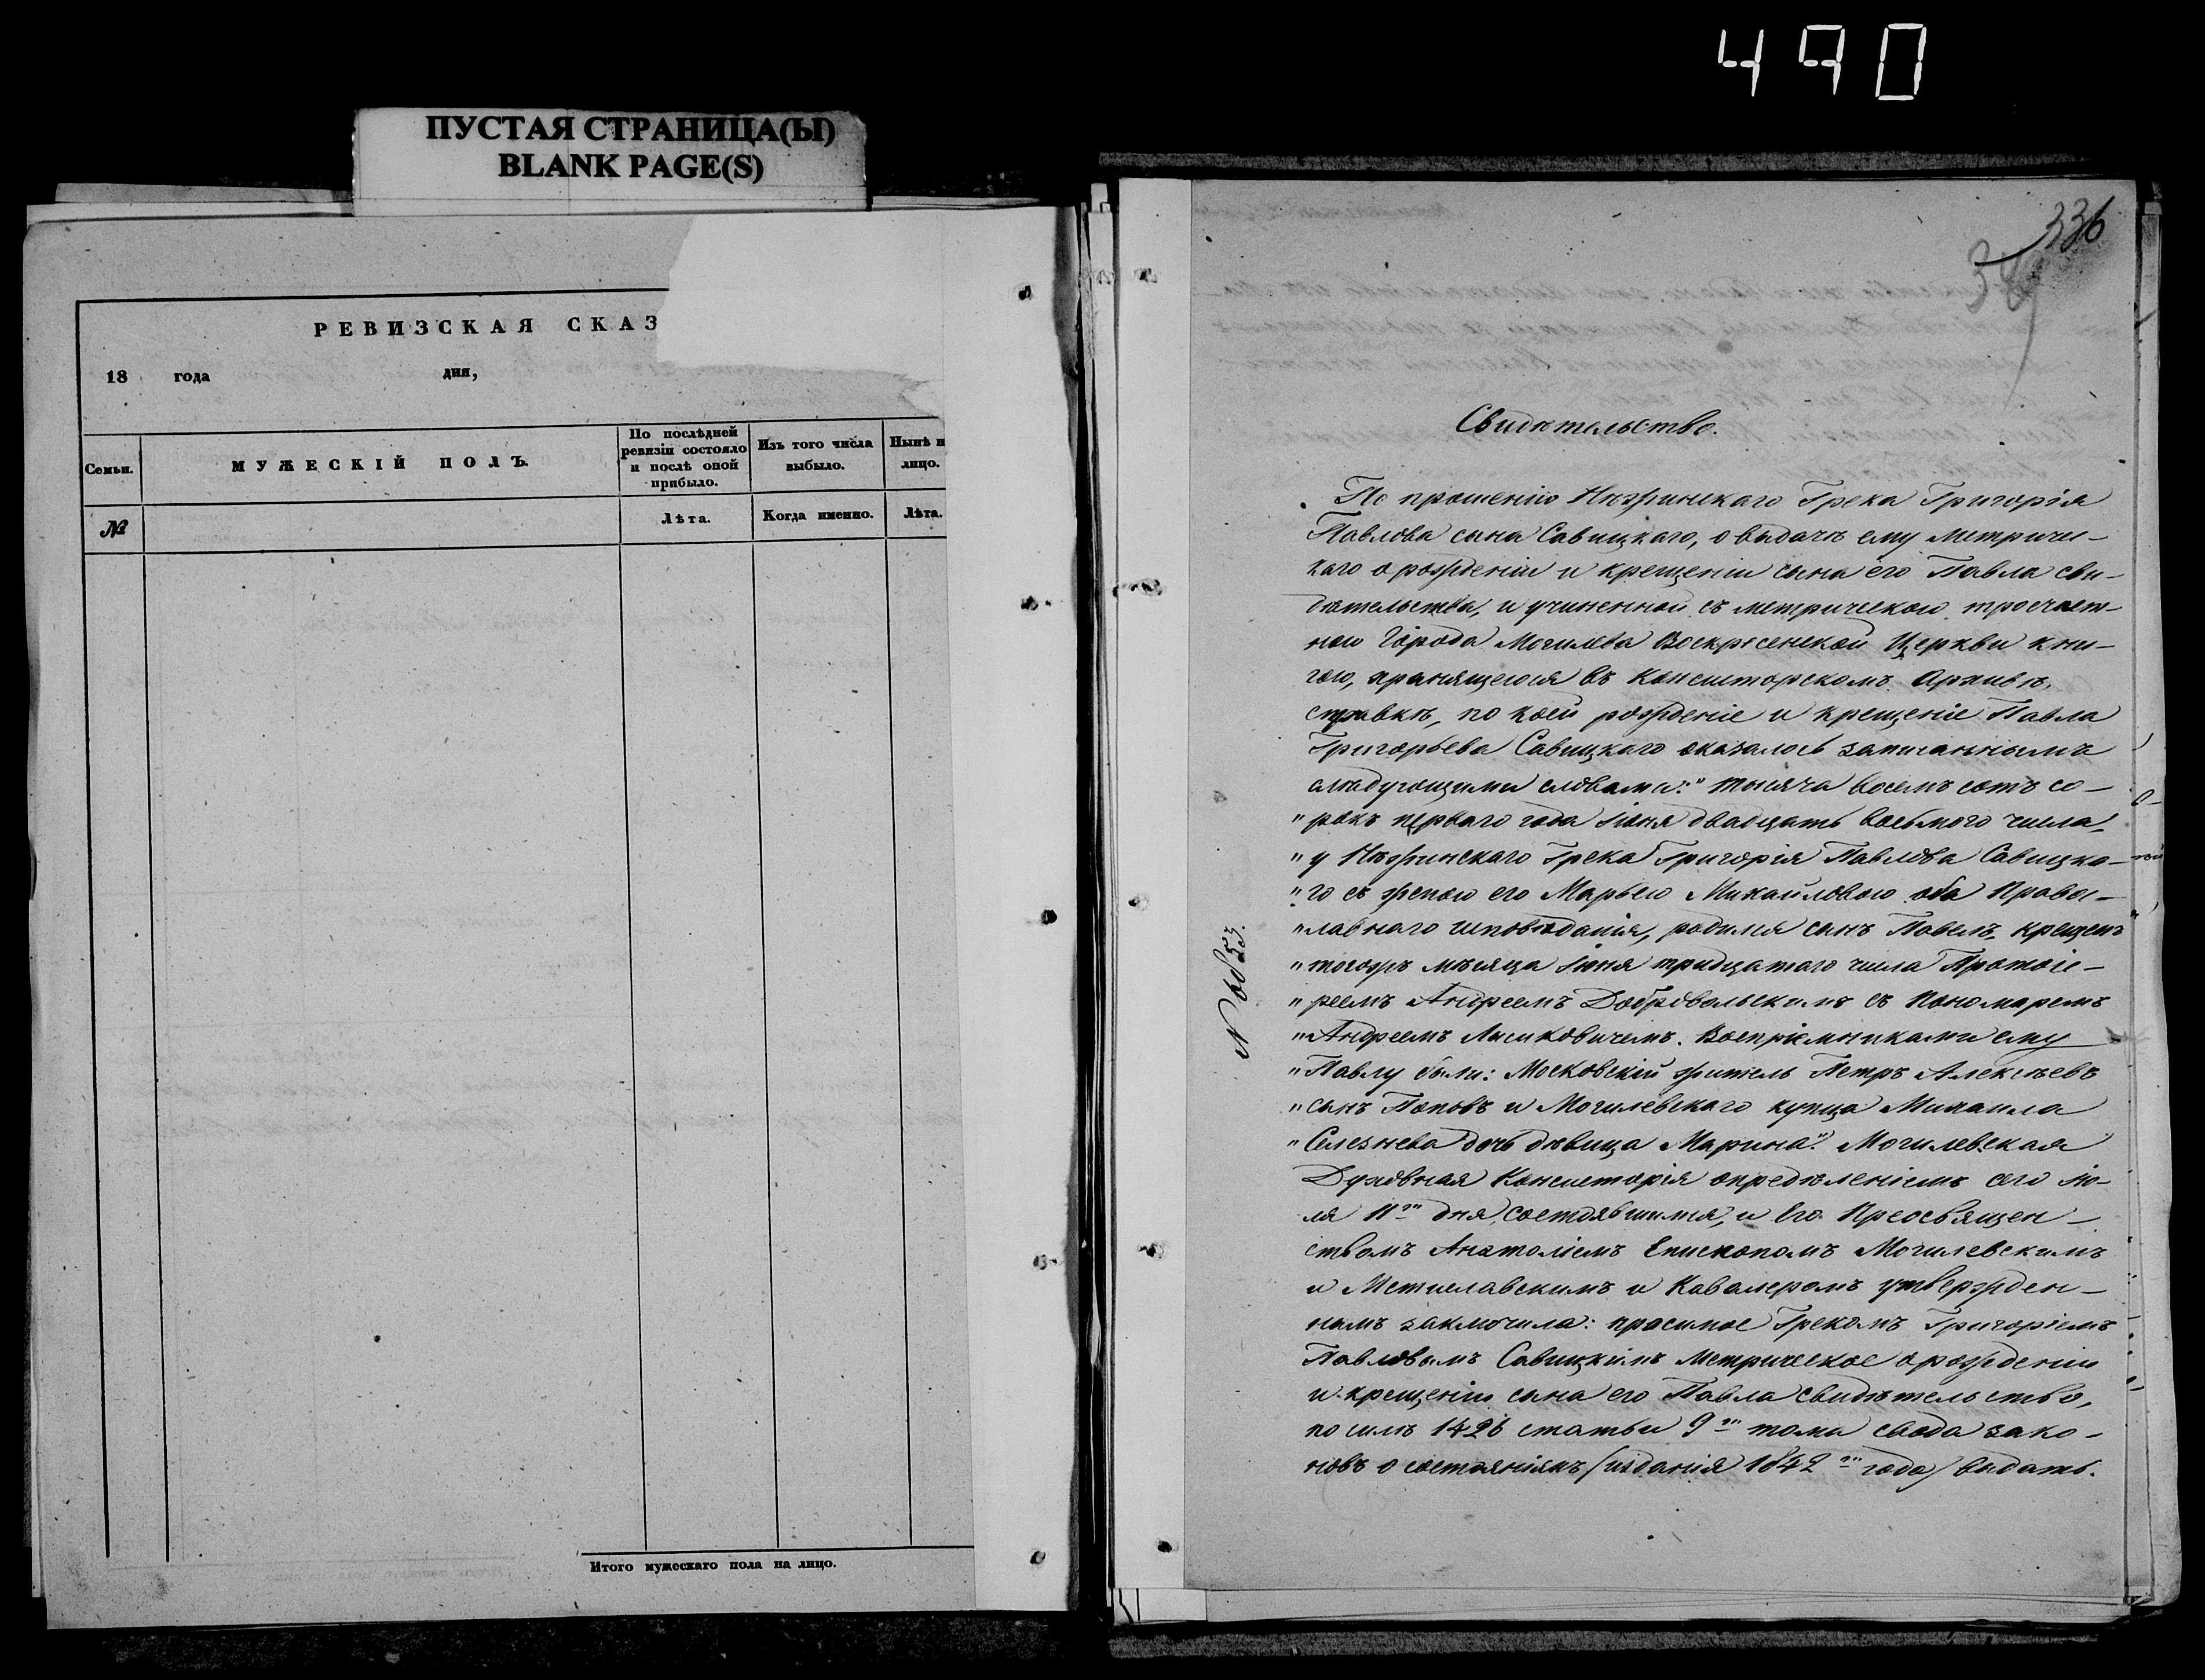 490
ПУСТАЯ СТРАНИЦА(Ы)
BLANK PAGE(S)
РЕВИЗСКАЯ СКАЗ
18 года дня,
Семьи.
МУЖЕСКІЙ ПОЛЪ.
По послѣдней
ревизіи состояло
и послѣ оной
прибыло.
Изъ того числа
выбыло.
Нынѣ н
лицо.
№
Лѣта.
Когда именно.
Лѣта.
Итого мужескаго пола на лицо.
336
Свидѣтельство.
По прошенію Нѣжинскаго Грека Григорія
Павлова сына Савицкаго, о выдачѣ ему метричес-
каго о рожденіи и крещеніи сына его Павла сви-
дѣтельства, и учиненной съ метрической троечаст-
ной Города Могилева Воскресенской Церкви кни-
гою, хранящеюся въ Консисторскомъ Архивѣ,
справкѣ, по коей рожденіе и крещеніе Павла
Григорьева Савицкаго оказалось записаннымъ
слѣдующими словами: „тысяча восемъ сотъ со-
„рокъ перваго года Іюня двадцать восьмого числа,
„у Нѣжинскаго Грека Григорія Павлова Савицка-
„го съ женою его Марьею Михайловою оба Правос-
„лавнаго исповѣданія, родился сынъ Павелъ, крещенъ
„тогожъ мѣсяца Іюня тридцатаго числа Протоіе-
„реемъ Андреемъ Добровольскимъ съ Пономаремъ
„Андреемъ Лысковичемъ. Воспріемниками ему
„Павлу были: Московскій житель Петръ Алексѣевъ
„сынъ Поповъ и Могилевскаго купца Михаила
„Селезнева дочь дѣвица Марина". Могилевская
Духовная Консисторія опредѣленіемъ сего Ію-
ля 11го дня состоявшимся, и Его Преосвящен-
ствомъ Анатоліемъ Епископомъ Могилевскимъ
и Мстиславскимъ и Кавалеромъ утвержден-
нымъ заключила: просимое Грекомъ Григоріемъ
Павловымъ Савицкимъ метрическое о рожденіи
и крещеніи сына его Павла свидѣтельство,
по силѣ 1426 статьи 9го тома свода зако-
новъ о состояніяхъ /изданія 1842го года/ выдать.